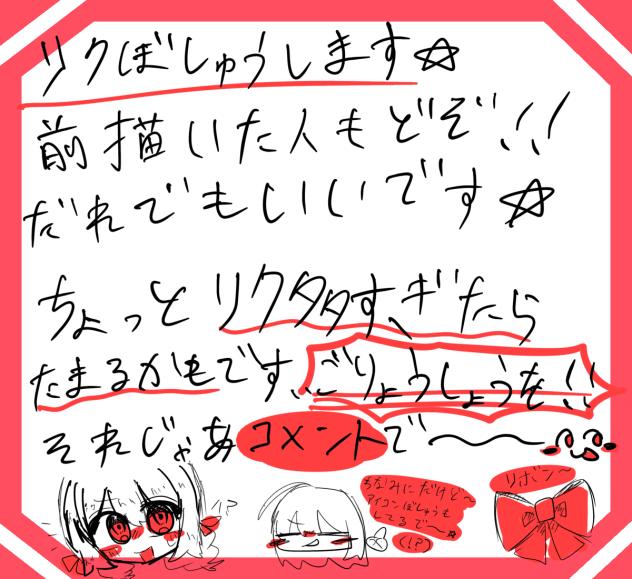 リクぼしゅうします☆
前描いた人もどぞ!!
だれでもいいです☆
ちょっとリク多すぎたら
たまるかもです、ごりょうしょうを!!
それじゃあコメントで〜
!?
ちなみにだけど〜
アイコンぼしゅうも
してるで〜☆
(!?)
リボン〜